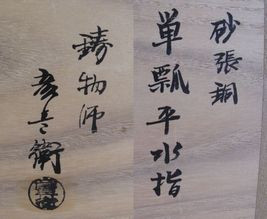 砂張銅
単瓢平水指
鋳物師
彦兵衛